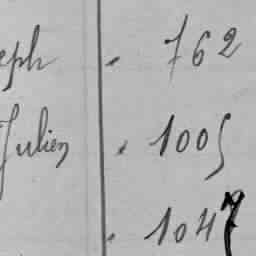 eph . 762
Julien . 1005
. 1047